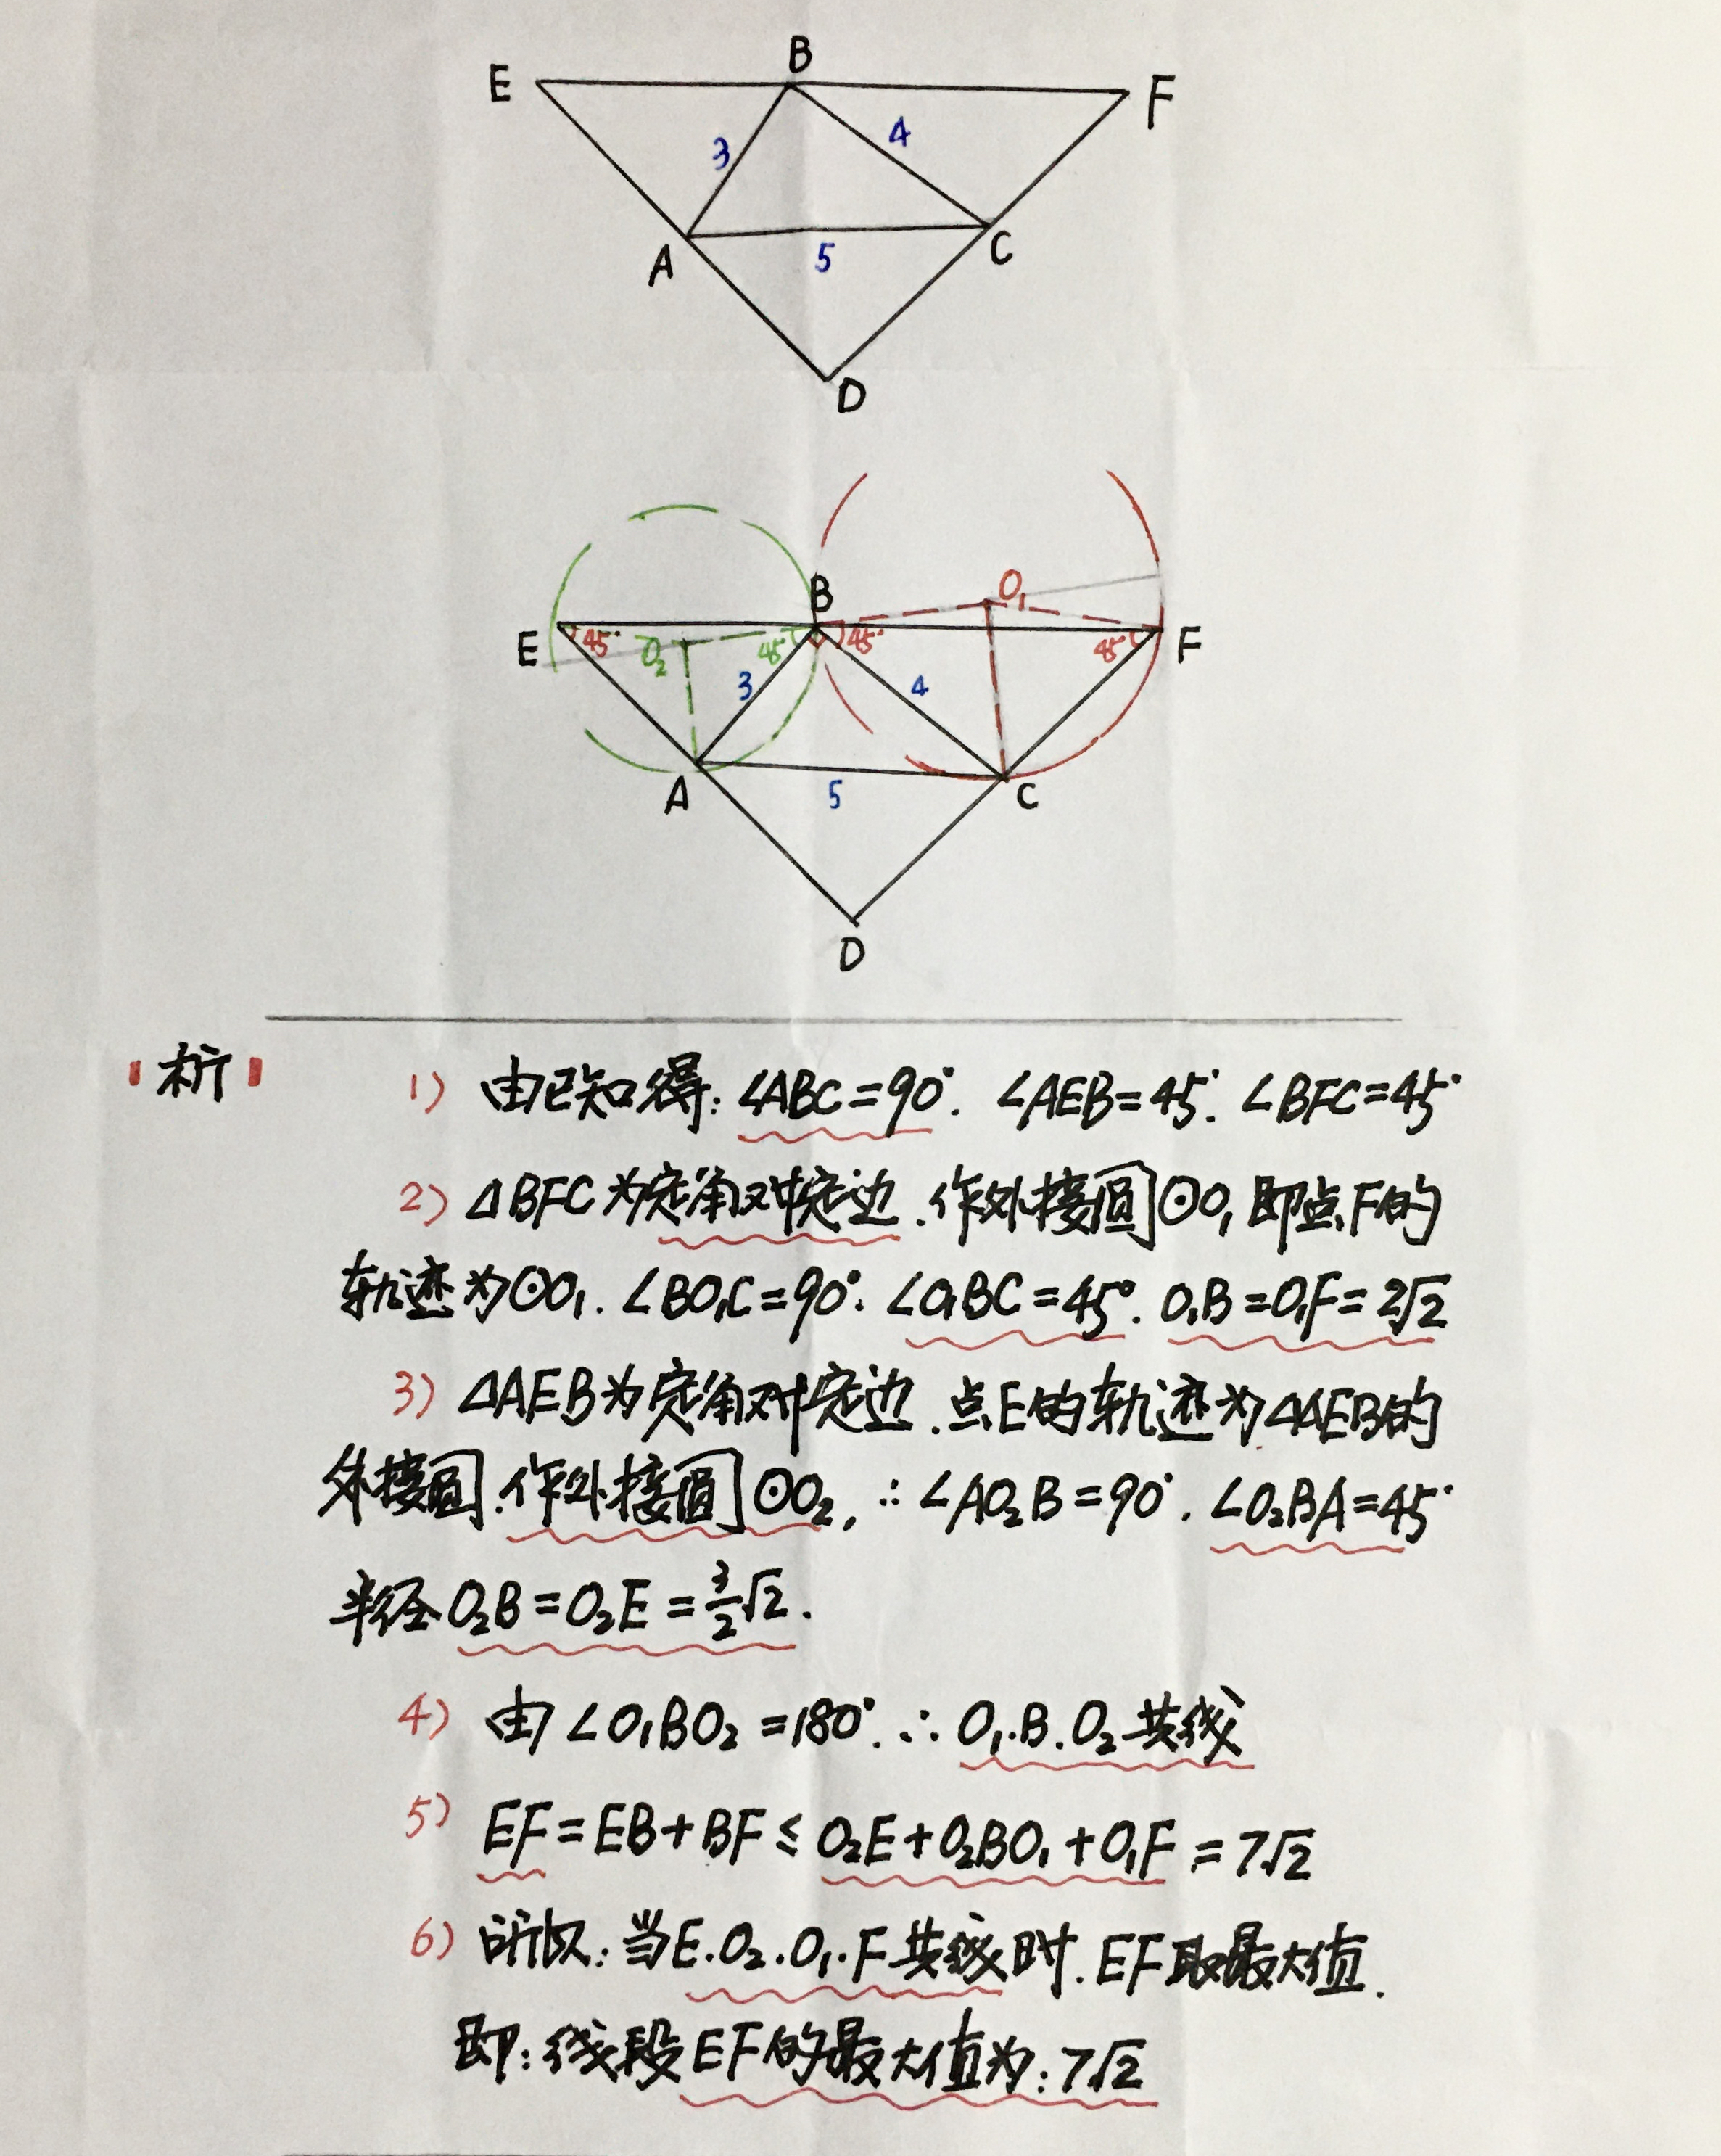 E B F
3 4
A 5 C
D
B O₁
E 45° O₂ 45° 45° 45° F
3 4
A 5 C
D
析 1) 由已知得: ∠ABC=90°. ∠AEB=45°. ∠BFC=45°
2) △BFC为定角对定边.作外接圆⊙O₁即点F的
轨迹为⊙O₁. ∠BO₁C=90°. ∠O₁BC=45°. O₁B=O₁F=2√2
3) △AEB为定角对定边.点E的轨迹为△AEB的
外接圆.作外接圆⊙O₂, ∴∠AO₂B=90°. ∠O₂BA=45°
半径O₂B=O₂E=3/2√2.
4) 由∠O₁BO₂=180°. ∴O₁.B.O₂共线
5) EF=EB+BF≤O₂E+O₂BO₁+O₁F=7√2
6) 所以:当E.O₂.O₁.F共线时.EF取最大值.
即:线段EF的最大值为:7√2